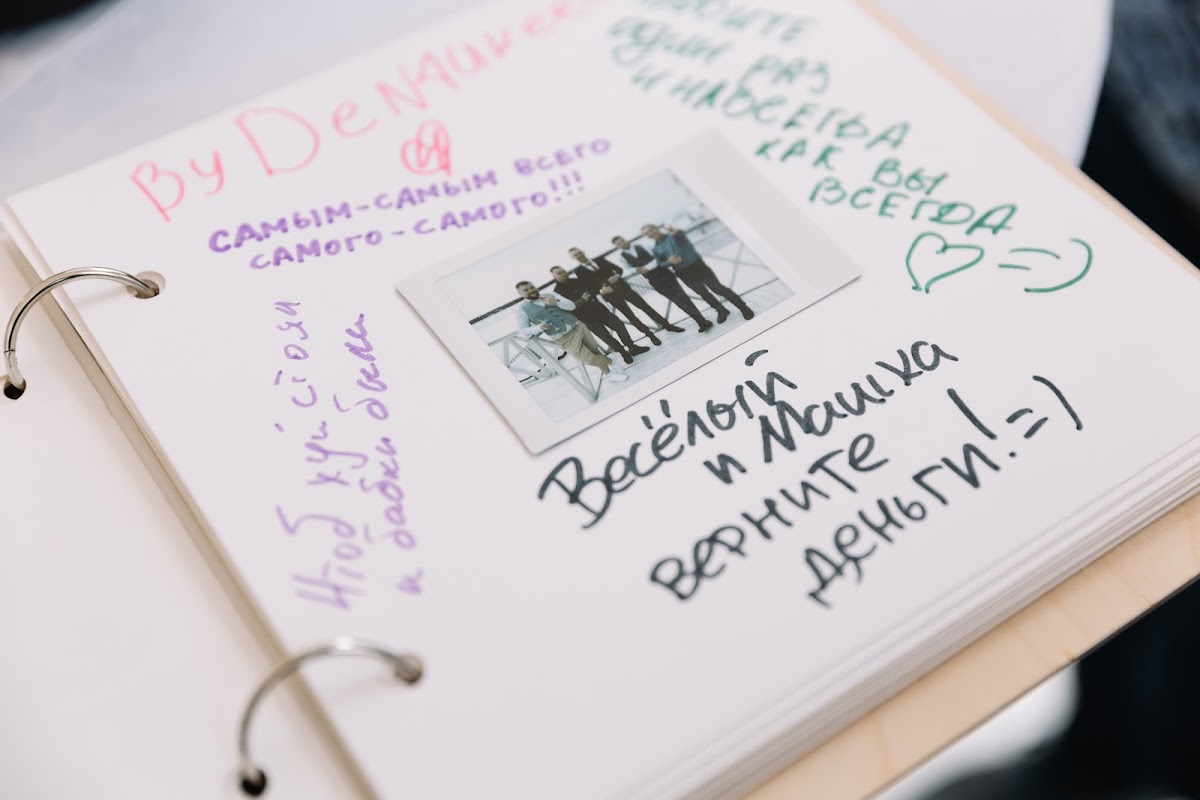 By DeNAUKee
САМЫМ-САМЫМ ВСЕГО
САМОГО-САМОГО!!!
ОДИН РАЗ
И НАВСЕГДА
КАК ВЫ
ВСЕГДА
=)
Чтоб хуй стоял
и бабки были
Весёлый
и Машка
верните
деньги! =)